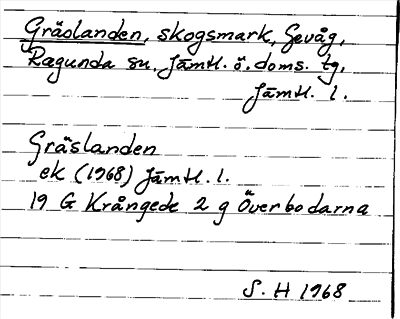 Gräslanden, skogsmark, Gevåg,
Ragunda sn. Jämtl. ö. doms. tg,
Jämtl. l.
Gräslanden
ek (1968) Jämtl. l.
19 G Krångede 2 g Överbodarna
S. H 1968